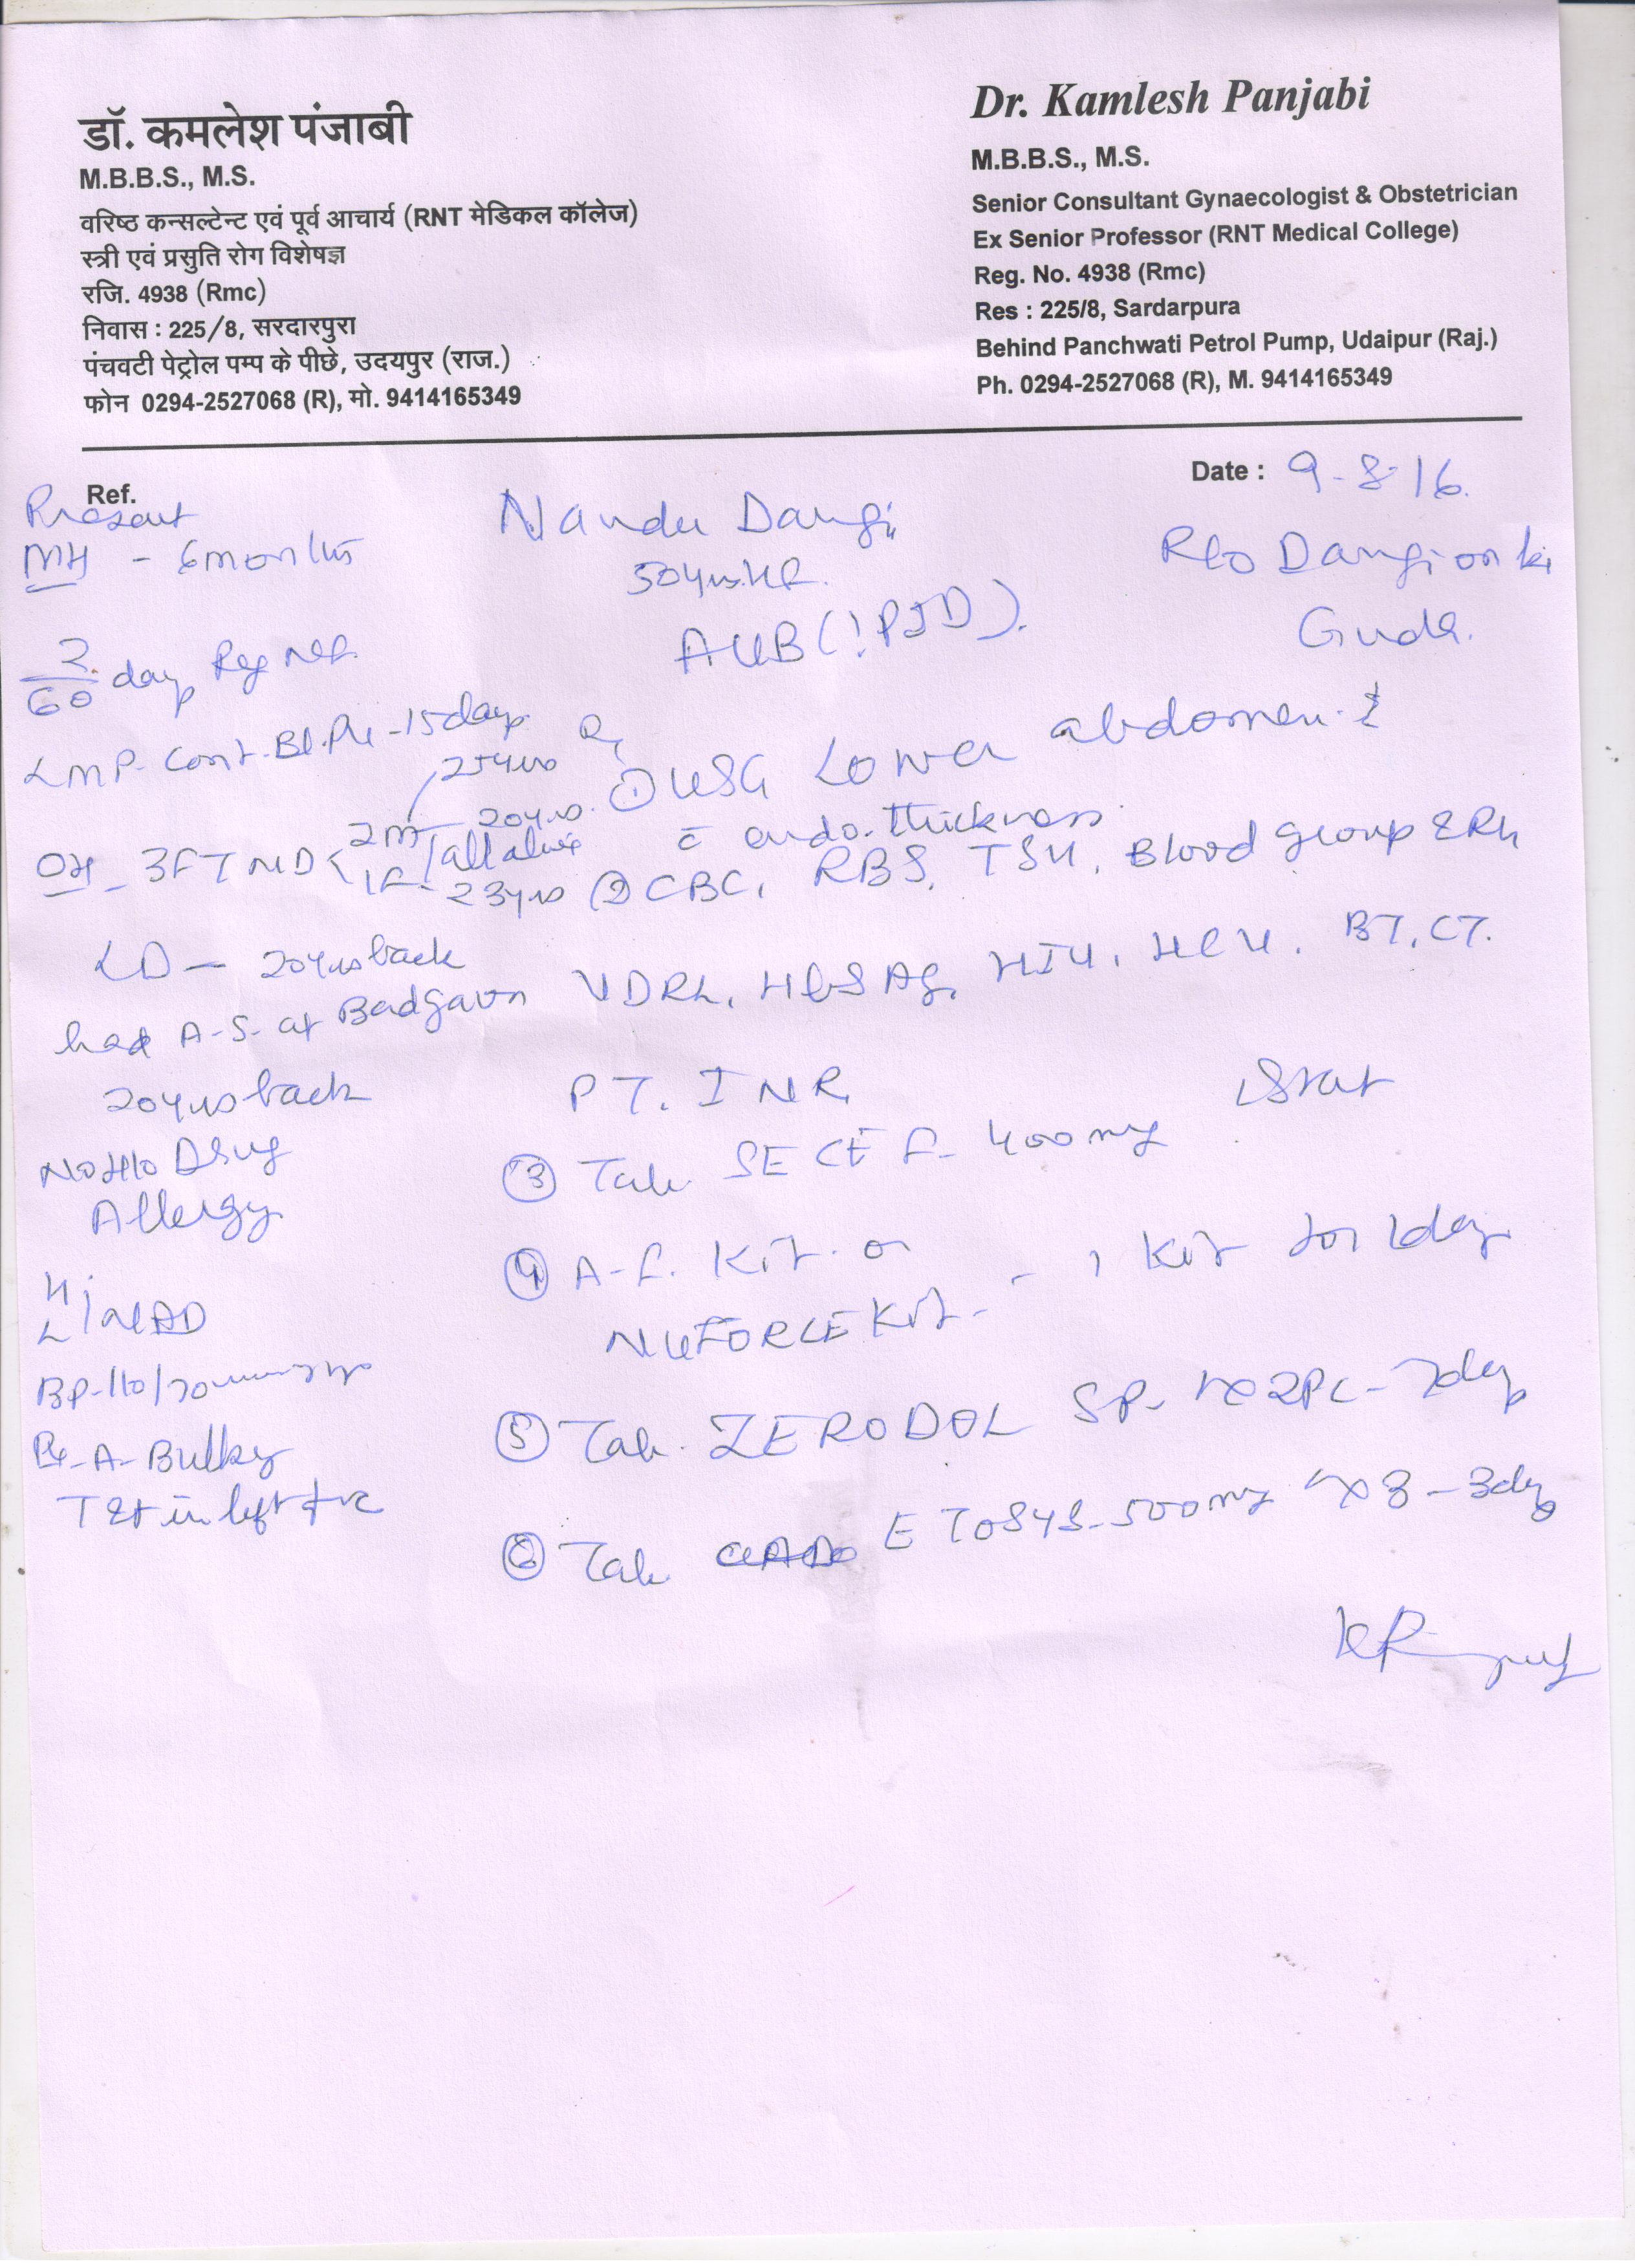 डॉ. कमलेश पंजाबी
M.B.B.S., M.S.
वरिष्ठ कन्सल्टेन्ट एवं पूर्व आचार्य (RNT मेडिकल कॉलेज)
स्त्री एवं प्रसुति रोग विशेषज्ञ
रजि. 4938 (Rmc)
निवास : 225/8, सरदारपुरा
पंचवटी पेट्रोल पम्प के पीछे, उदयपुर (राज.)
फोन 0294-2527068 (R), मो. 9414165349
Dr. Kamlesh Panjabi
M.B.B.S., M.S.
Senior Consultant Gynaecologist & Obstetrician
Ex Senior Professor (RNT Medical College)
Reg. No. 4938 (Rmc)
Res : 225/8, Sardarpura
Behind Panchwati Petrol Pump, Udaipur (Raj.)
Ph. 0294-2527068 (R), M. 9414165349
Ref.
Date : 9-8-16.
Nandu Dangi
50yrs
R/o Dangion ki
Guda.
AUB (! PID).
Present
MH - 6 months
2/60 days Reg
LMP- Cont. Bl. P/V - 15 days
OH - 3FTND
2M 25yrs
20yrs
all alive
1F- 23yrs
LD - 20yrs back
had A-S- at Badgaon
20yrs back
No H/o Drug
Allergy
H
L / NAD
BP-110/70 mm
P/V - A- Bulky
T in left fx
Rx
① USG Lower abdomen
c̄ endo. thickness
② CBC, RBS, TSH, Blood group & Rh
VDRL, HbSAg, HIV, HCV, BT, CT.
PT. INR
③ Tab. SECEF- 400mg Stat
④ A-F. Kit. or
NUFORCE Kit - 1 Kit for 1day
⑤ Tab. ZERODOL SP- 1x2PC- 7day
⑥ Tab. ETOSYS-500mg 1x3 - 3day